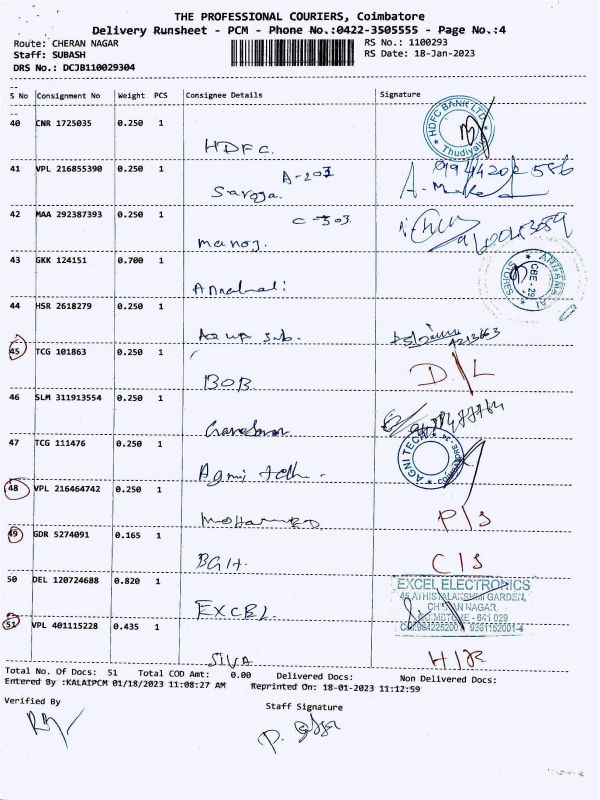 THE PROFESSIONAL COURIERS, Coimbatore
Delivery Runsheet - PCM - Phone No.:0422-3505555 - Page No.:4
Route: CHERAN NAGAR RS No.: 1100293
Staff: SUBASH RS Date: 18-Jan-2023
DRS No.: DCJB110029304
S No Consignment No Weight PCS Consignee Details Signature
40 CNR 1725035 0.250 1 HDFC. HDFC BANK LTD Thudiyalur
41 VPL 216855390 0.250 1 A-203
Saroja.
42 MAA 292387393 0.250 1 C-303
manoj.
43 GKK 124151 0.700 1 Annamalai ANNAMALAI STORES CBE - 29
44 HSR 2618279 0.250 1
45 TCG 101863 0.250 1 BOB D/L
46 SLM 311913554 0.250 1
47 TCG 111476 0.250 1 Agni AGNI TECH
48 VPL 216464742 0.250 1 MOHAMMED P/S
49 GDR 5274091 0.165 1 BGH. C/S
50 DEL 120724688 0.820 1 EXCEL EXCEL ELECTRONICS
CHERAN NAGAR,
COIMBTORE - 641 029
51 VPL 401115228 0.435 1 SIVA
Total No. Of Docs: 51 Total COD Amt: 0.00 Delivered Docs: Non Delivered Docs:
Entered By :KALAIPCM 01/18/2023 11:08:27 AM Reprinted On: 18-01-2023 11:12:59
Verified By Staff Signature